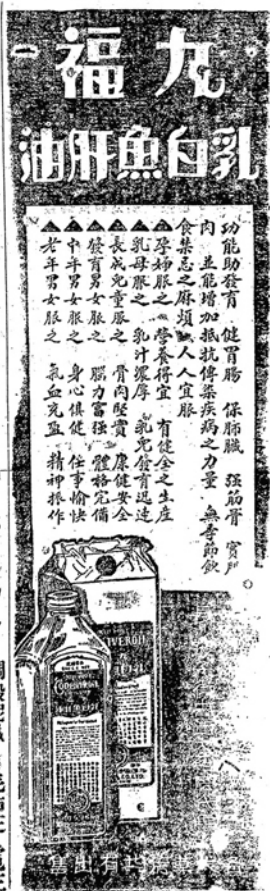 九福
乳白魚肝油
功能助發育 健胃腸 保肺臟 強筋骨 實肌
肉 並能增加抵抗傳染疾病之力量 無季節飲
食禁忌之麻煩 人人宜服
▲孕婦服之 營養得宜 有健全之生產
▲乳母服之 乳汁濃厚 乳兒發育迅速
▲長成兒童服之 骨肉堅實 康健安全
▲發育男女服之 腦力富强 體格完備
▲中年男女服之 身心俱健 任事愉快
▲老年男女服之 氣血充盈 精神振作
均有出售